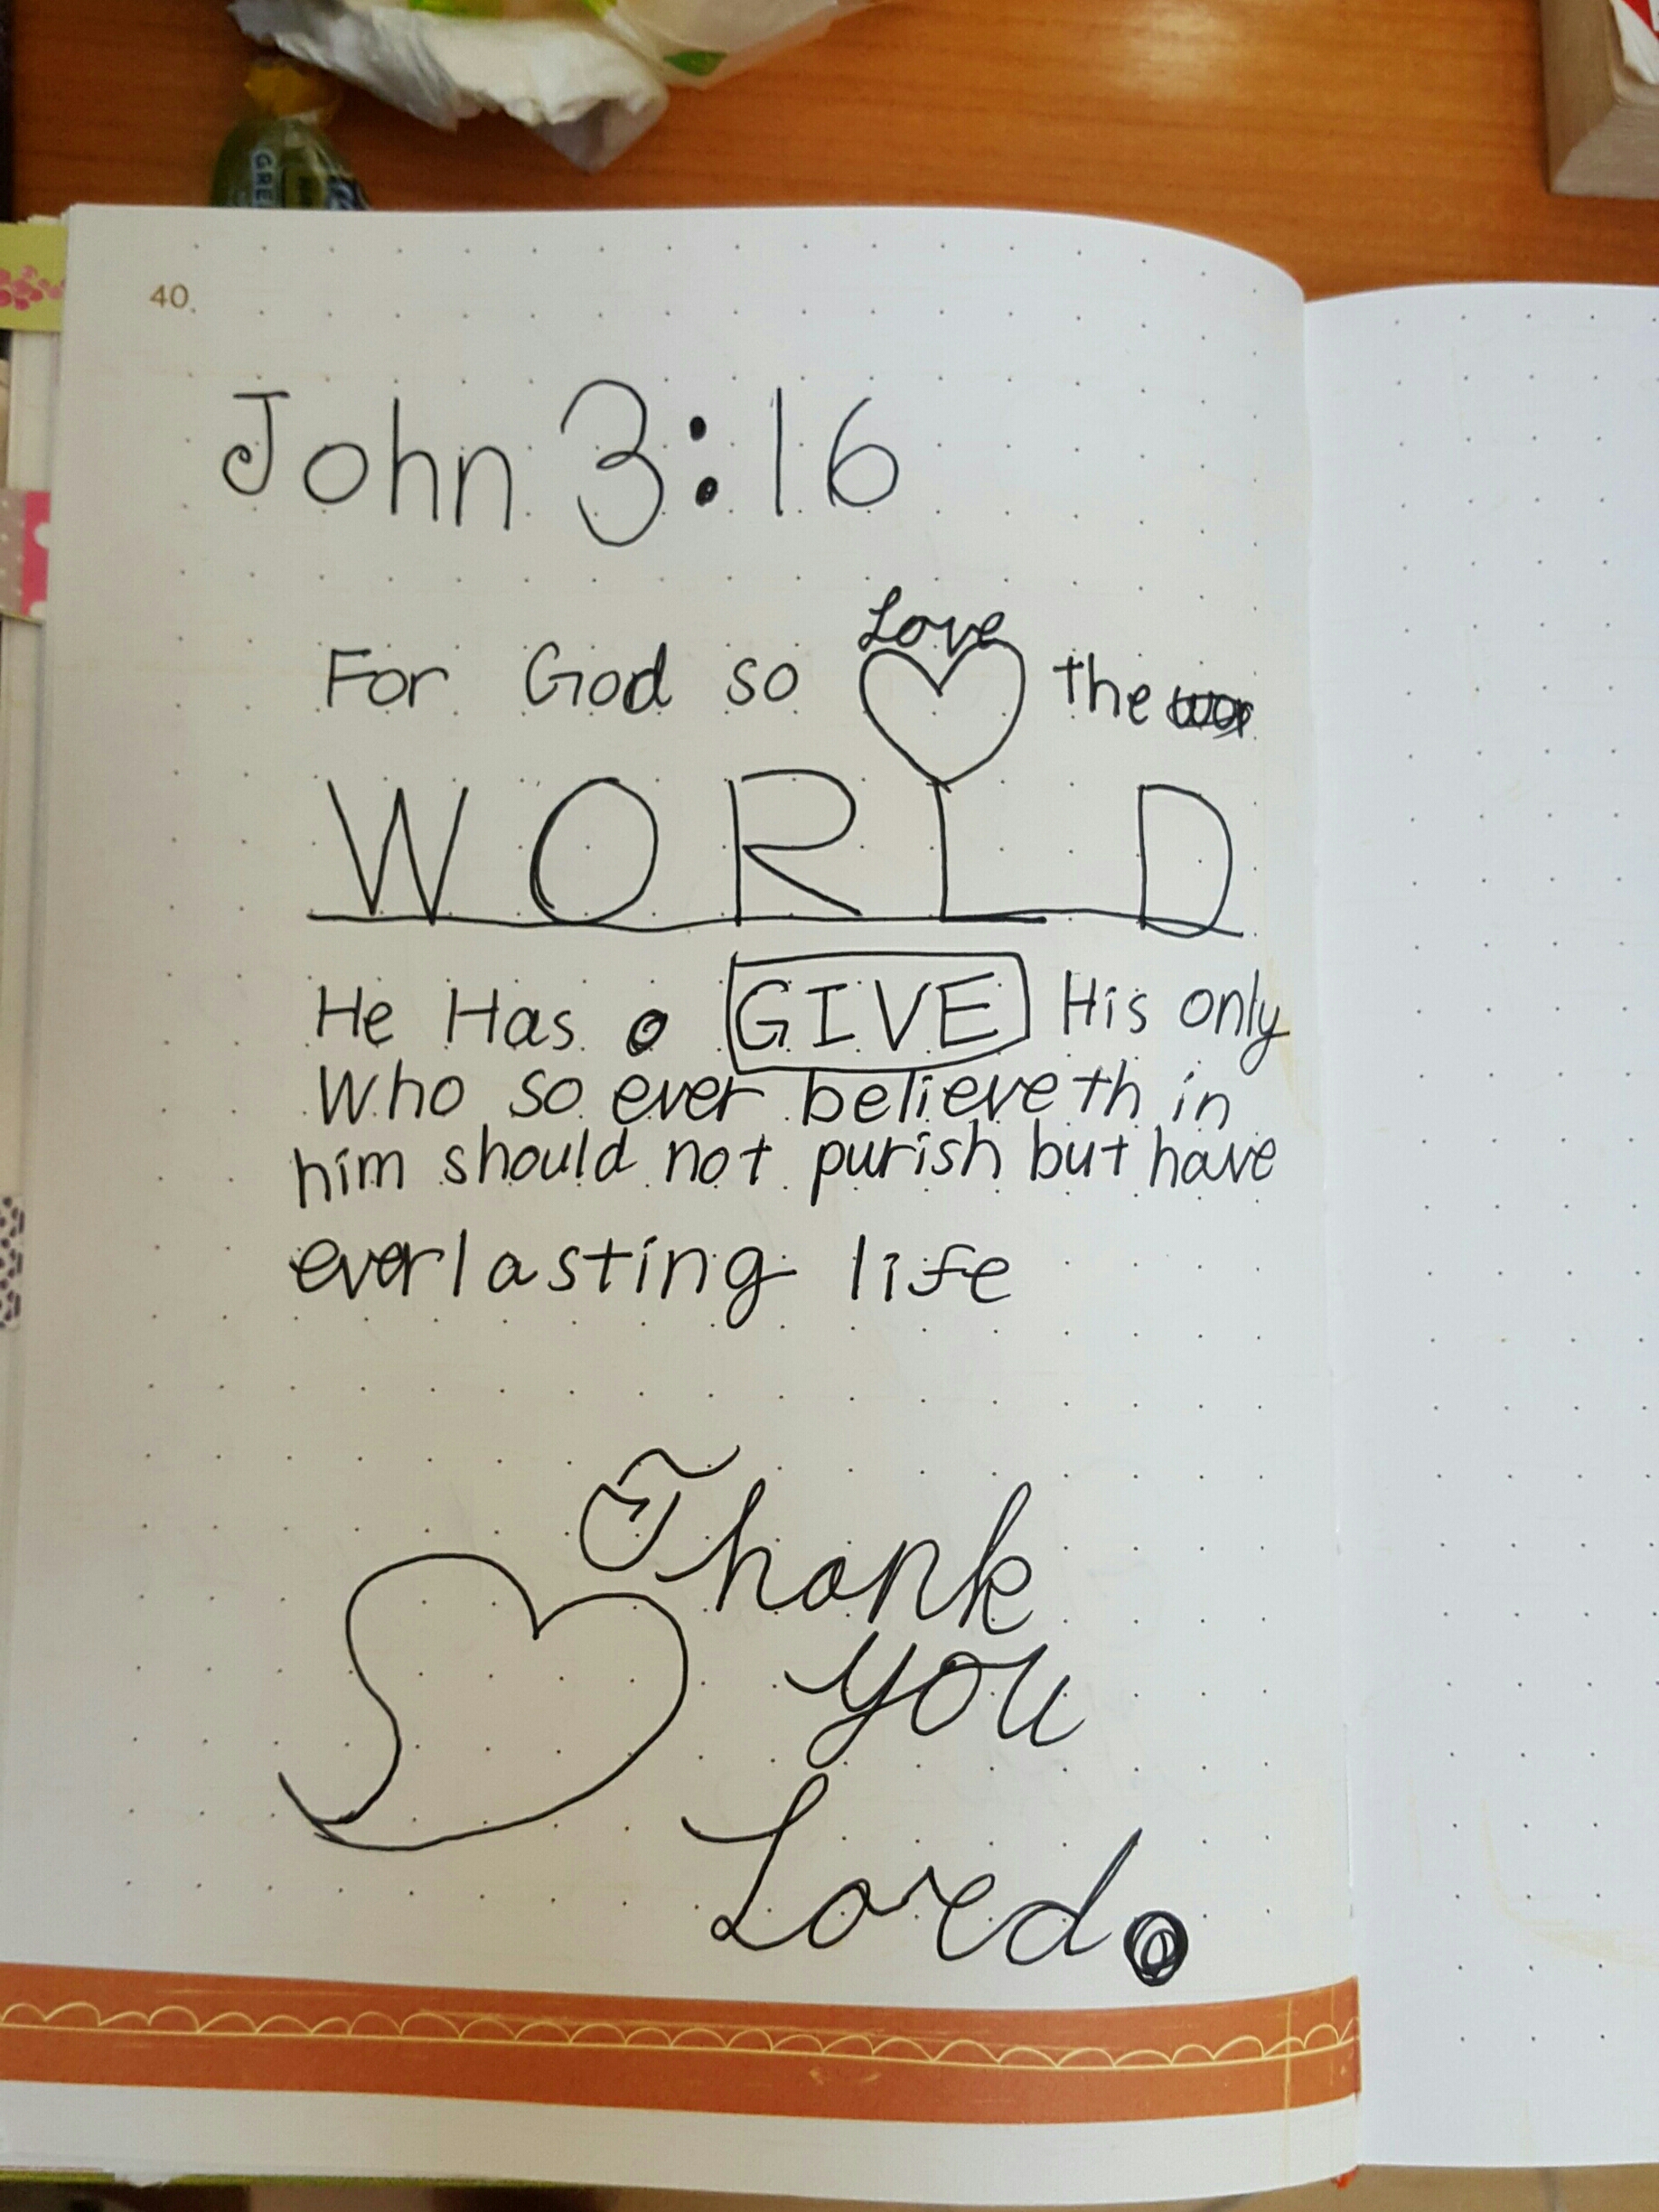 GRE
40
John 3:16
Love
For God so the
WORLD
He Has GIVE His only
Who so ever believeth in
him should not purish but have
everlasting life
Thank
you
Lord.